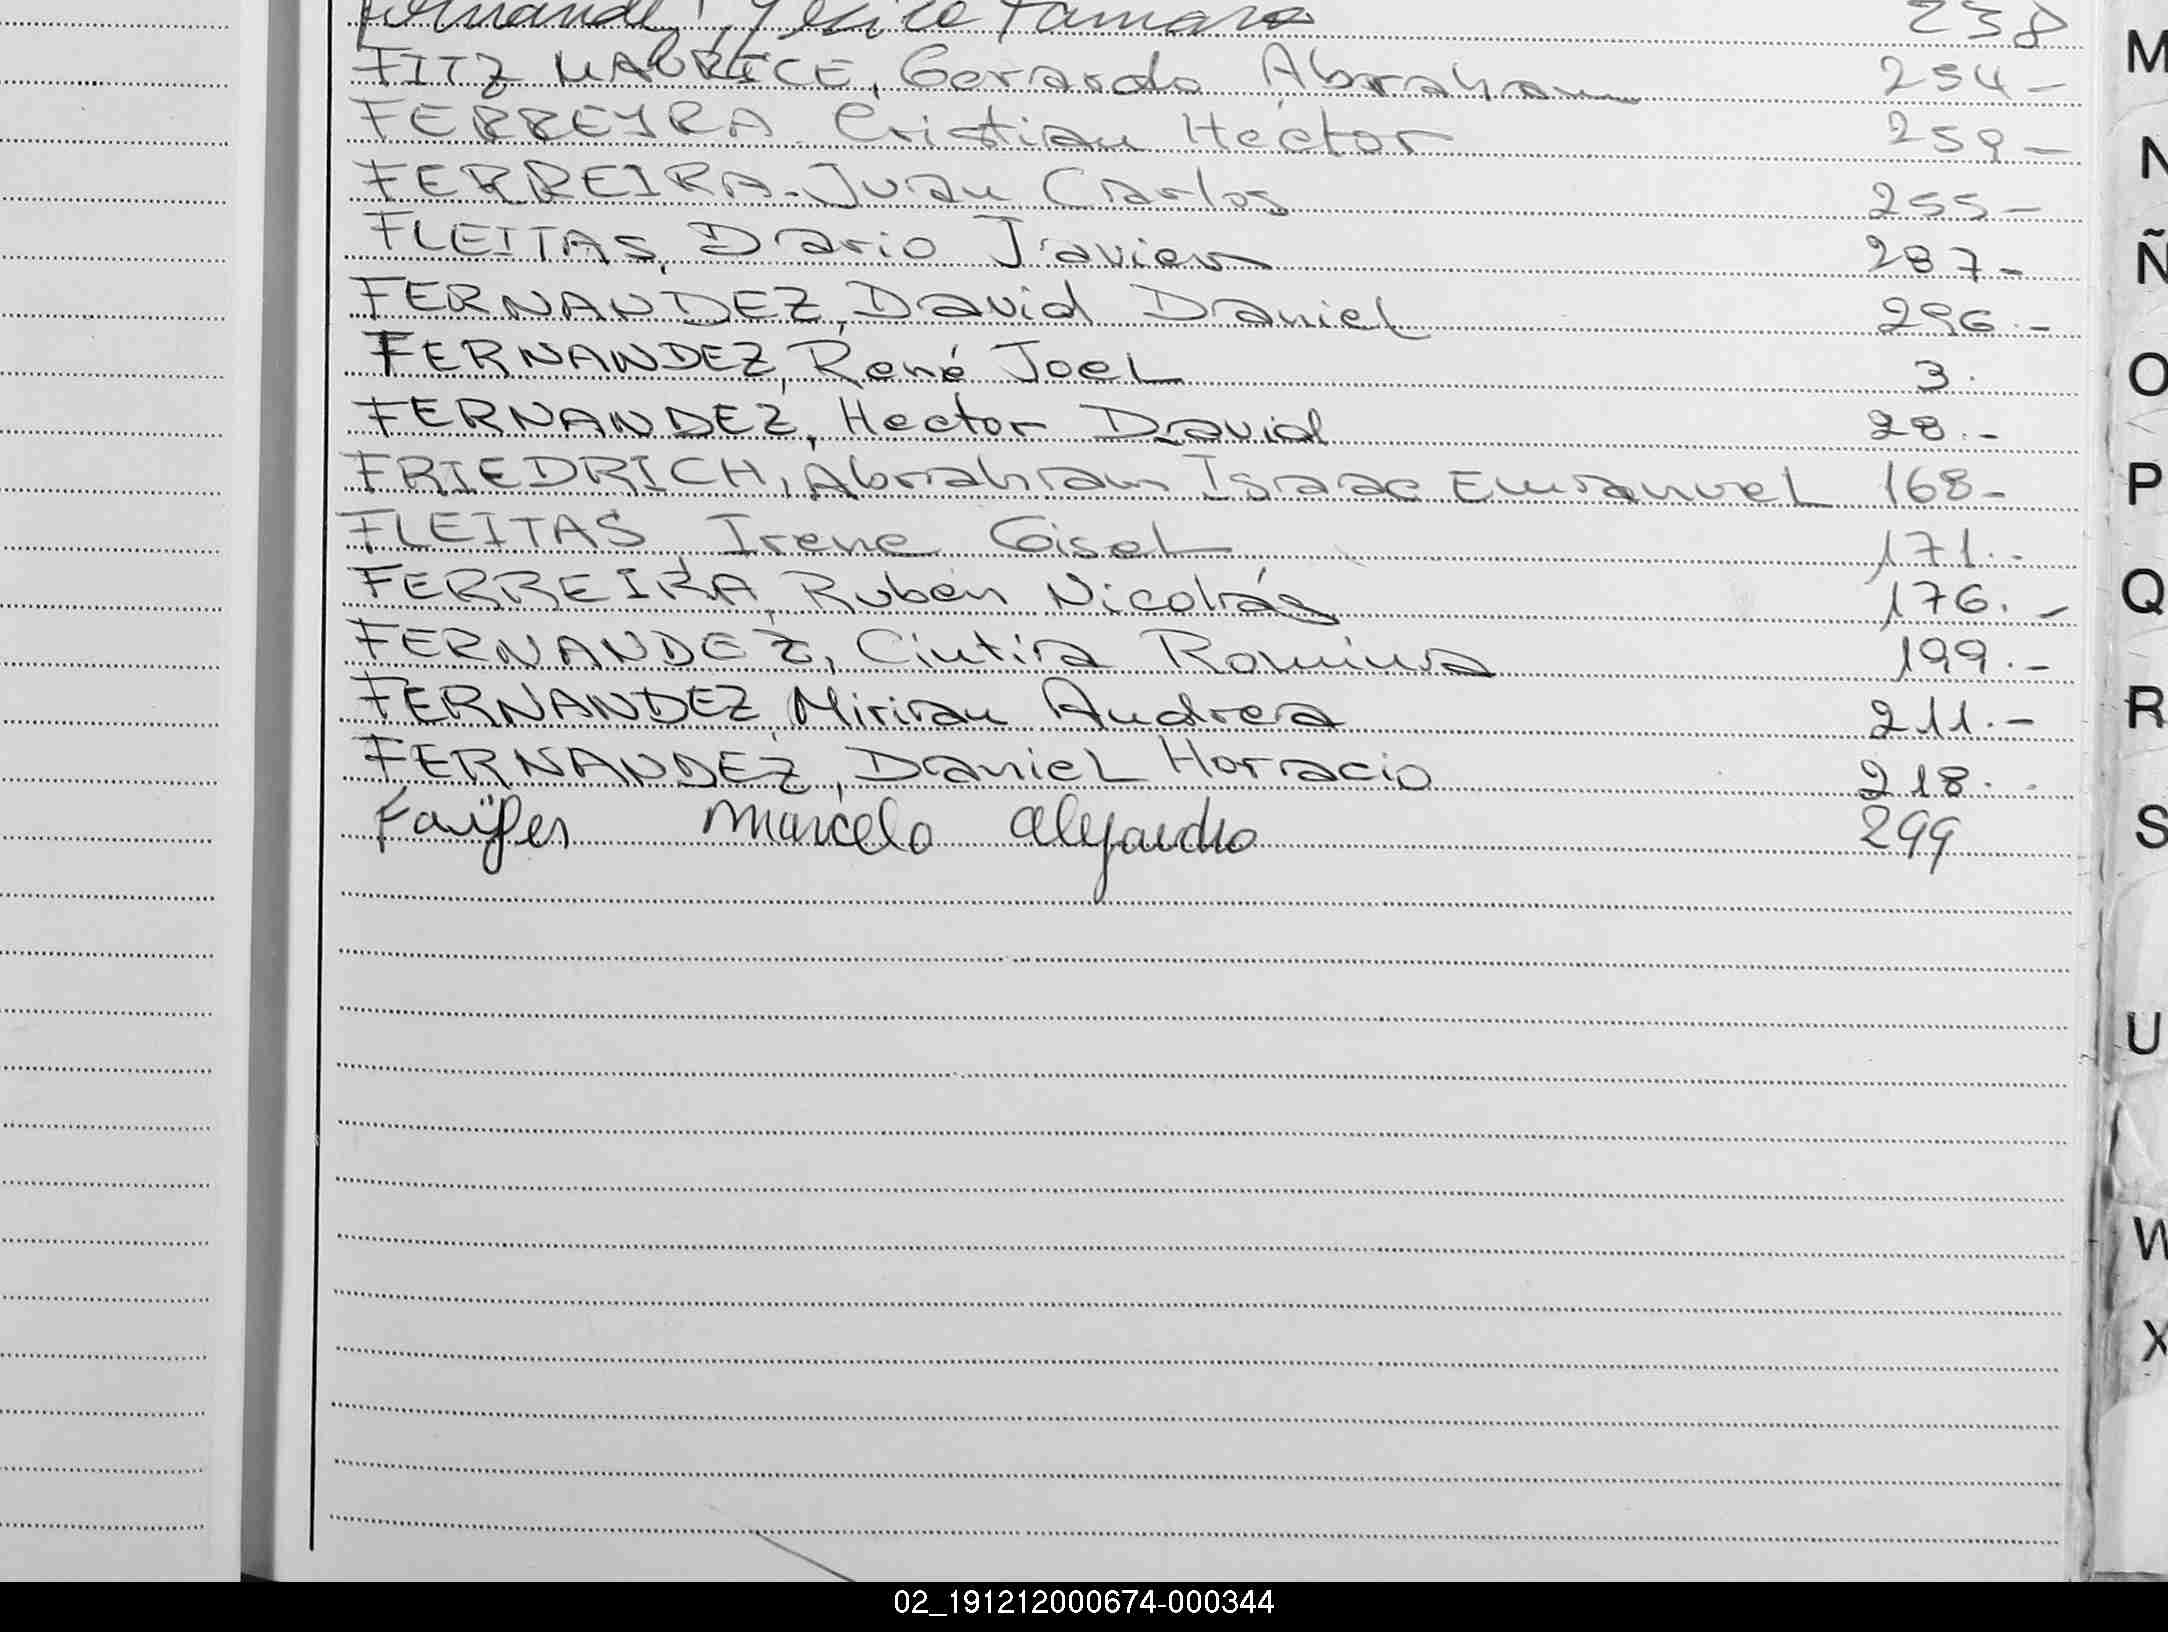 Fernandez Yesica Tamara 238
FITZ MAURICE, Gerardo Abraham 254-
FERREYRA. Cristian Héctor 259-
FERREIRA. Juan Carlos 255-
FLEITAS, Dario Javier 287-
FERNANDEZ, David Daniel 296.-
FERNANDEZ, René Joel 3.
FERNANDEZ, Hector David 28.-
FRIEDRICH, Abraham Isaac Emanuel 168-
FLEITAS, Irene Gisel 171.-
FERREIRA, Rubén Nicolás 176.-
FERNANDEZ, Cintia Romina 199.-
FERNANDEZ, Mirian Andrea 211.-
FERNANDEZ, Daniel Horacio 218.-
Marcelo Alejandro 299
M
N
Ñ
O
P
Q
R
S
U
W
X
02_191212000674-000344